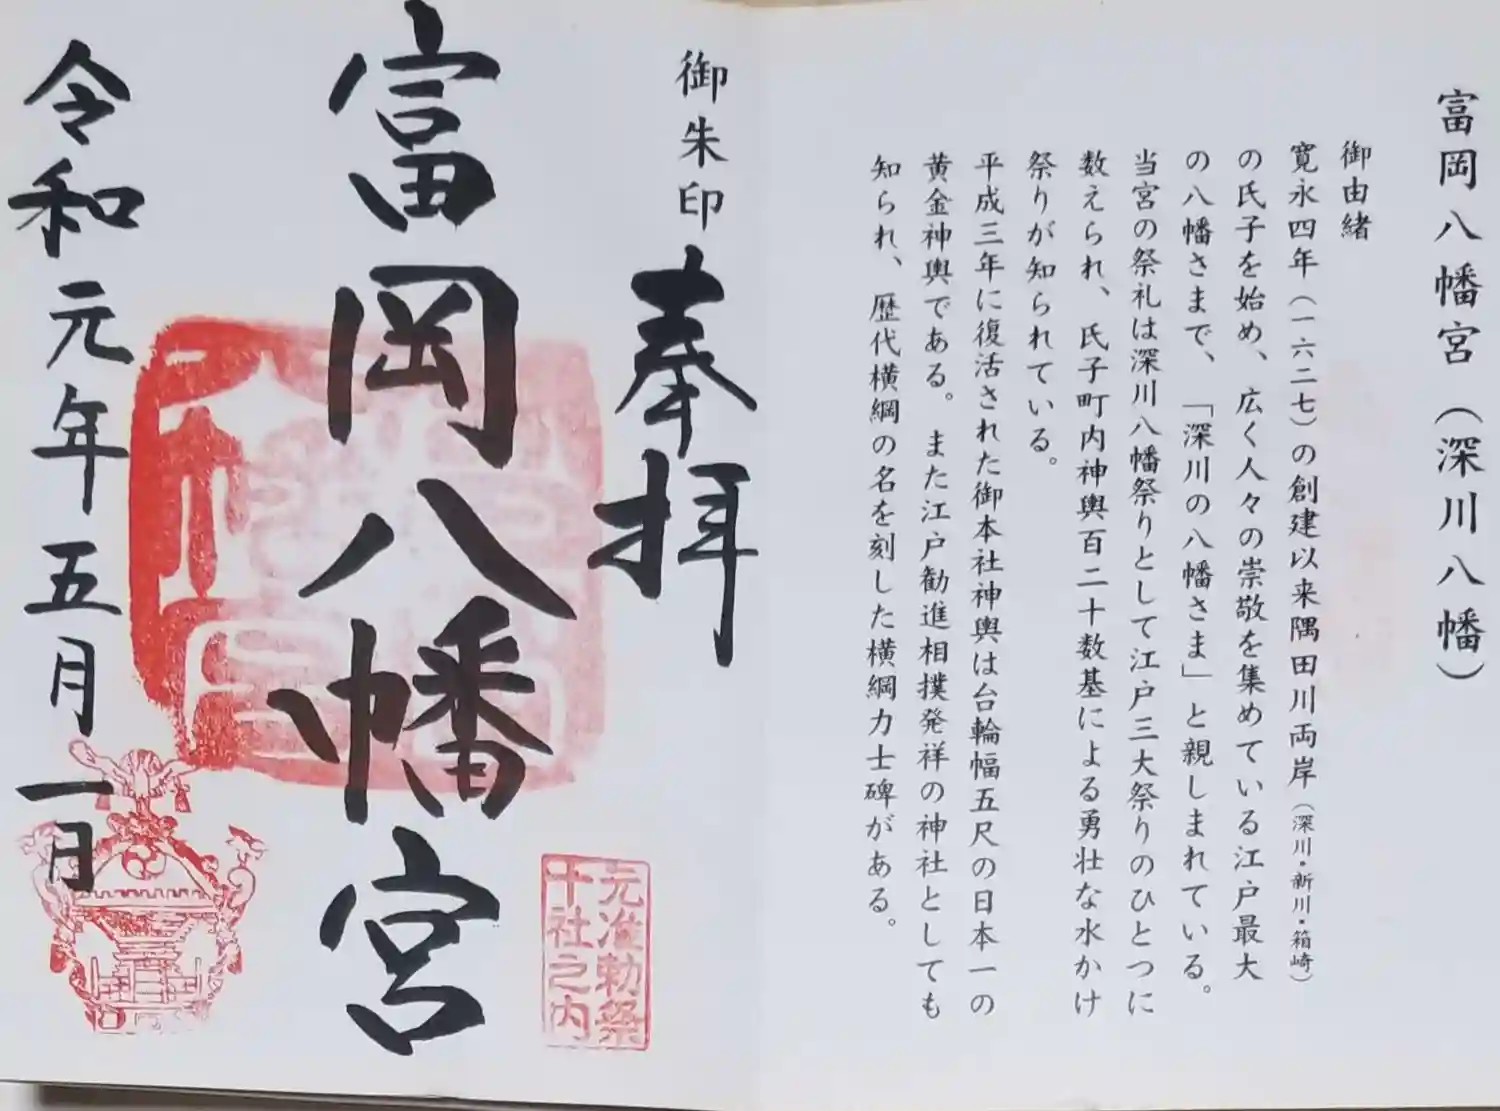 富岡八幡宮（深川八幡）
御由緒
寛永四年（一六二七）の創建以来隅田川両岸（深川・新川・箱崎）
の氏子を始め、広く人々の崇敬を集めている江戸最大
の八幡さまで、「深川の八幡さま」と親しまれている。
当宮の祭礼は深川八幡祭りとして江戸三大祭りのひとつに
数えられ、氏子町内神輿百二十数基による勇壮な水かけ
祭りが知られている。
平成三年に復活された御本社神輿は台輪幅五尺の日本一の
黄金神輿である。また江戸勧進相撲発祥の神社としても
知られ、歴代横綱の名を刻した横綱力士碑がある。
御朱印
奉拝
元准勅祭
十社之内
富岡八幡宮
令和元年五月一日